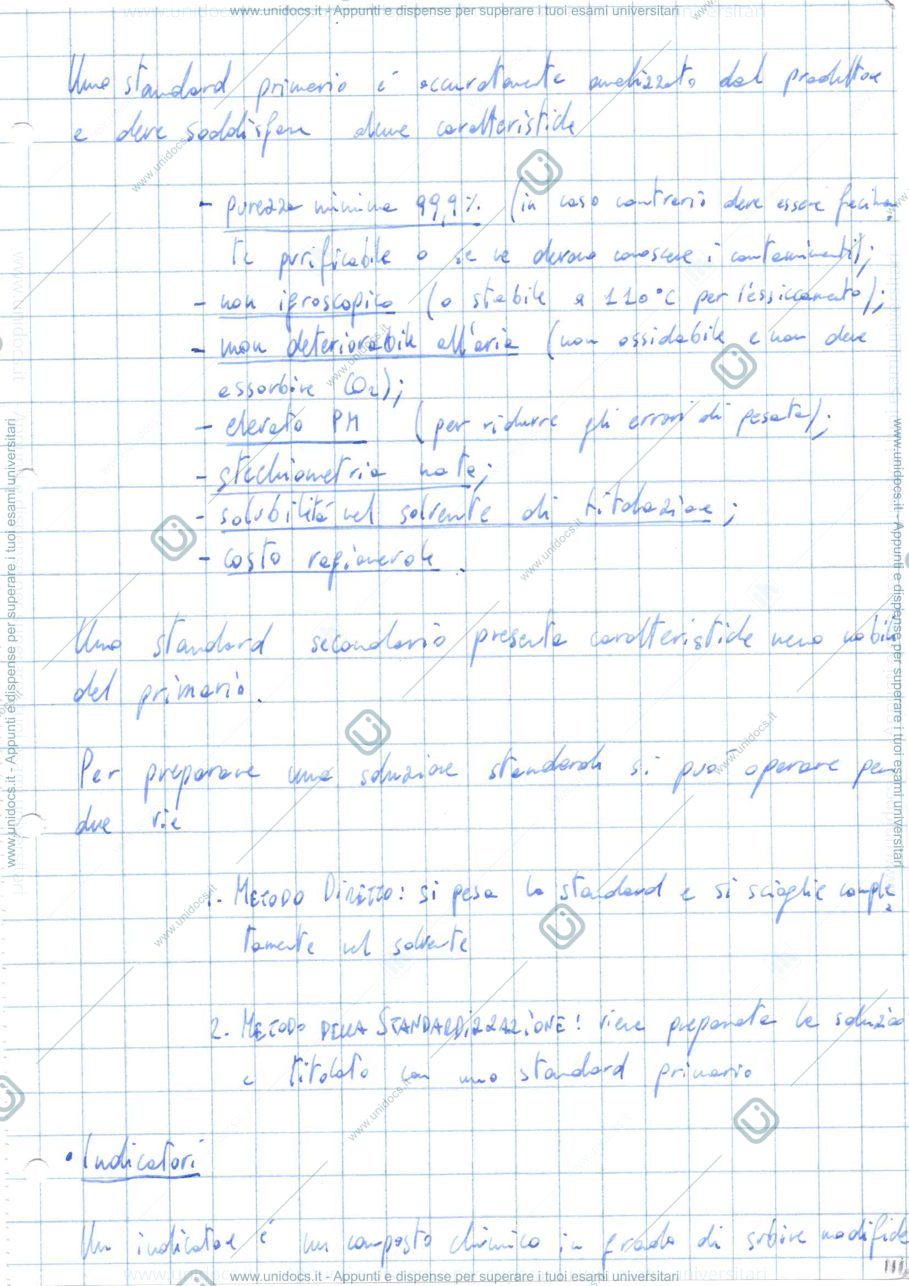 www.unidocs.it - Appunti e dispense per superare i tuoi esami universitari
Uno standard primario è accuratamente analizzato dal produttore
e deve soddisfare alcune caratteristiche
- purezza minima 99,9% (in caso contrario deve essere facilmen
te purificabile o se ne devono conoscere i contaminanti);
- non igroscopico (o stabile a 110°C per l'essiccamento);
- non deteriorabile all'aria (non ossidabile e non deve
assorbire CO2);
- elevato PM (per ridurre gli errori di pesata);
- stechiometria nota;
- solubilità nel solvente di titolazione;
- costo ragionevole.
Uno standard secondario presenta caratteristiche meno nobili
del primario.
Per preparare una soluzione standard si può operare per
due vie
1. METODO DIRETTO: si pesa lo standard e si scioglie comple
tamente nel solvente
2. METODO DELLA STANDARDIZZAZIONE: viene preparata la soluzione
e titolata con uno standard primario
• Indicatori
Un indicatore è un composto chimico in grado di subire modifiche
www.unidocs.it - Appunti e dispense per superare i tuoi esami universitari